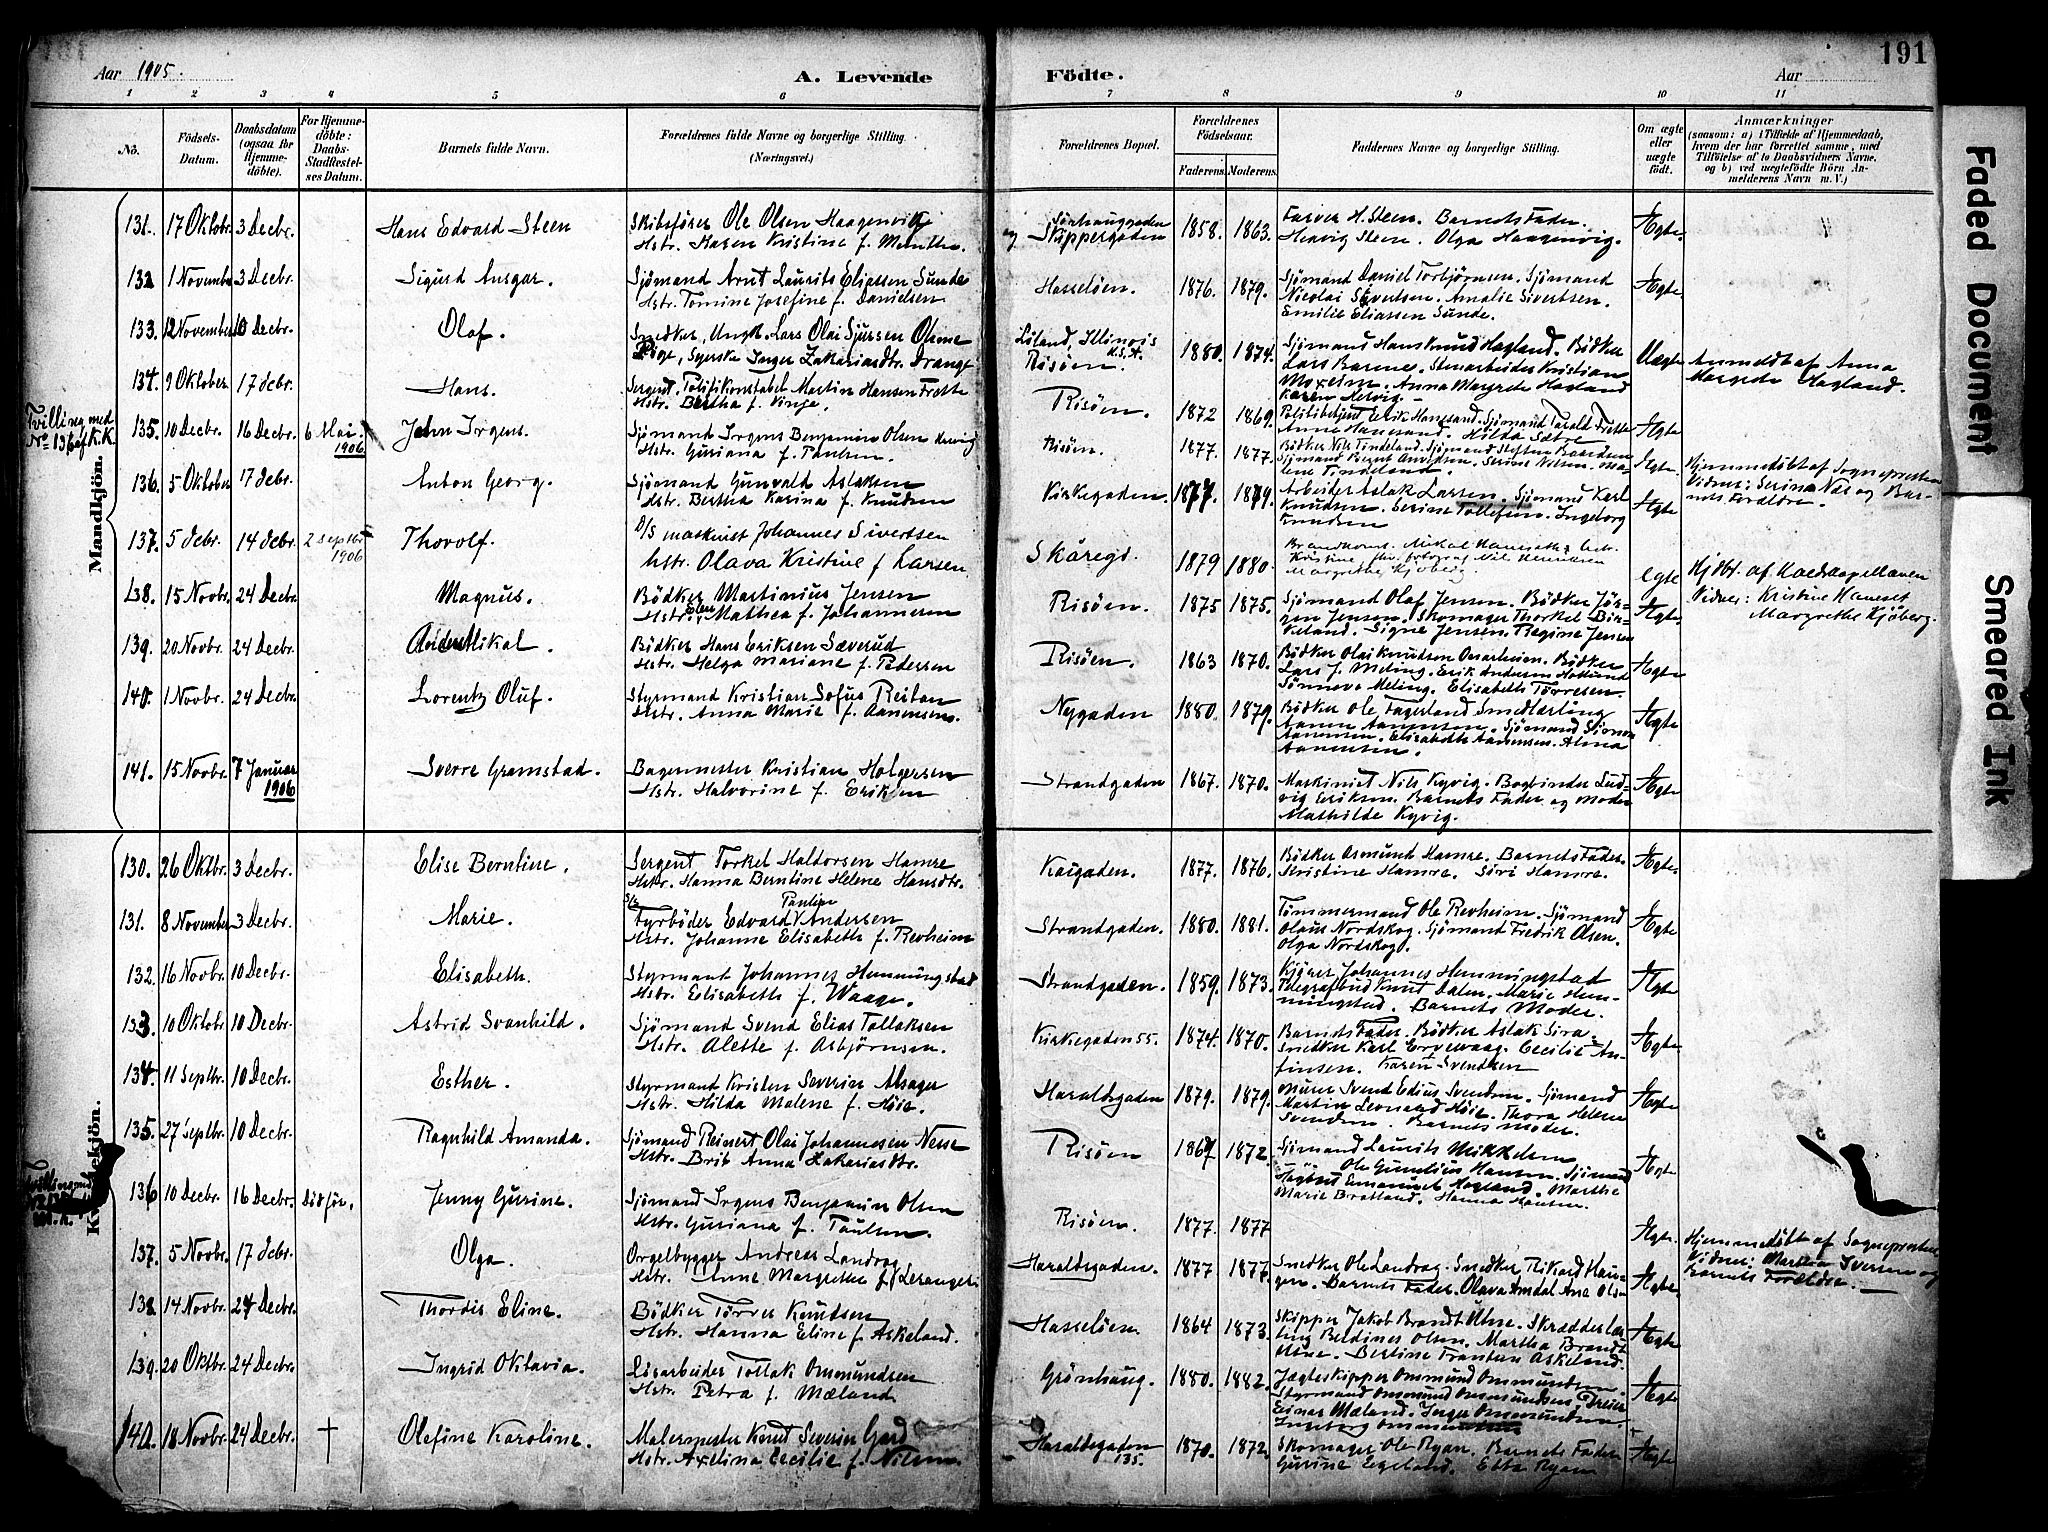 191
Aar 1905.
A. Levende
Födte.
Aar
1 2 3 4 5 6 7 8 9 10 11
No.
Födsels-
Datum.
Daabsdatum
(ogsaa for
Hjemme-
döbte).
For Hjemme-
döbte:
Daabs-
Stadfæstel-
ses Datum.
Barnets fulde Navn.
Forældrenes fulde Navne og borgerlige Stilling.
(Næringsvei.)
Forældrenes Bopæl.
Forældrenes
Födselsaar.
Faderens. Moderens.
Faddernes Navne og borgerlige Stilling.
Om ægte
eller
uægte
födt.
Anmærkninger
(saasom: a) i Tilfælde af Hjemmedaab,
hvem der har forrettet samme, med
Tilföielse af to Daabsvidners Navne.
og b) ved uægtefödte Börn An-
melderens Navn m. V.)
Mandkjön.
131. 17 Oktobr. 3 Decbr. Hans Edvard Steen
Skibsförer Ole Olsen Haagenvik
Hstr. Karen Kristine f. Munthe.
og Skippergaden 1858. 1863.
Farver H. Steen. Barnets Fader.
Henvig Steen. Olga Haagenvig.
Ægte.
132 1 November 3 Decbr. Sigurd Ansgar.
Sjömand Arnt Laurits Eliassen Sunde
Hstr. Tomine Josefine f. Danielsen
Hasselöen. 1876. 1879.
Sjömand Daniel Torbjörnsen. Sjömand
Nicolai Sivertsen. Amalie Sivertsen.
Emilie Eliassen Sunde.
Ægte.
133. 12 November 10 Decbr. Olaf.
Snedker, Ungk. Lars Olai Sjursen
Pige, Syerske Inger Zakariasdtr. Drange
Illinois
U.S.A.
Risöen. 1880. 1874.
Sjömand Hans Knud Hagland. Bödker
Lars Barnes. Stenarbeider Kristian
Anna Margrete Hagland
Uægte
Anmeldt af Anna
Margrete Hagland.
134. 9 Oktober 17 debr. Hans.
Sergent, Politikonstabel Martin Hansen Frette
Hstr. Bertha f. Vinje.
Risöen. 1872 1869.
Politibetjent Erik Hanesand. Sjömand Tarald Frette
Anne Hanesand. Hilda Sæbre
Ægte
Tvilling med
No 136 af K.K.
135. 10 Decbr. 16 Decbr. 6 Mai 1906. John Irgens.
Sjömand Irgens Benjamin Olsen
Hstr. Guriana f. Paulsen.
Risöen. 1877. 1877.
Bödker Nils Tindeland. Sjömand
Sjömand Bernt Arvidsen. Serine Nilsen.
Tindeland.
Ægte.
Hjemmedöbt af Sognepresten
Vidner: Serina Næs og Bar-
nets Forældre.
136. 5 Oktober 17 debr. Anton Georg.
Sjömand Gunvald Aslaksen
Hstr. Bertha Karina f. Knudsen
Kirkegaden. 1877. 1879.
Arbeider Aslak Larsen. Sjömand Karl
Knudsen. Serine Tollefsen. Ingeborg
Knudsen
Ægte
137. 5 debr. 14 debr. 2 septbr 1906 Thorolf.
D/S maskinist Johannes Sivertsen
hstr. Olava Kristine f Larsen.
Skåregd. 1879 1880.
Margrethe Kjöberg
Egte
Hj dbt. af Kaldskapellanen
Vidner: Kristine Haneset
Margrethe Kjöberg.
138. 15 Novbr. 24 Decbr. Magnus.
Bödker Martinius Jensen
Hstr. Elen Mathea f. Johannesen
Risöen. 1875 1875.
Sjömand Olaf Jensen. Bödker Jör-
gen Jensen. Skomager Thorkel Bir-
keland. Signe Jensen. Regine Jensen
Ægte.
139. 20 Novbr. 24 Decbr. Anders Mikal.
Bödker Hans Eriksen Sæverud
Hstr. Helga Mariane f. Pedersen
Risöen. 1863 1870.
Bödker Olai Knudsen. Bödker
Lars J. Meling. Erik Andersen
Sönneva Meling. Elisabeth Törresen.
Ægte
140. 1 Novbr. 24 Decbr. Lorentz Oluf.
Styrmand Kristian Sofus Reitan
Hstr. Anna Marie f. Aanensens.
Nygaden 1880. 1879.
Bödker Ole Fagerland Smedlærling
Aanen Aanensen. Sjömand Simon
Aanensen. Elisabeth Aanensen. Alma
Aanensen.
Ægte
141. 15 Novbr. 7 Januar 1906 Sverre Gramstad.
Bagermester Kristian Holgersen
Hstr. Halvorine f. Eriksen
Strandgaden 1867. 1870.
Maskinist Nils Kyvig. Bogbinder Lud-
vig Eriksen. Barnets Fader og Moder
Mathilde Kyvig.
Ægte
Kvindekjön.
130. 26 Oktbr. 3 Decbr. Elise Berntine.
Sergent Torkel Haldorsen Hamre
Hstr. Hanna Berntine Helene Hansdtr.
Kaigaden. 1877. 1876.
Bödker Asmund Hamre. Barnets Fader.
Kristine Hamre. Siri Hamre.
Ægte.
131. 8 November 3 Decbr. Marie.
Fyrböder Edvard Paulin Andersen
Hstr. Johanne Elisabeth f. Revheim
Strandgaden. 1880. 1881.
Tömmermand Ole Revheim. Sjömand
Olaus Nordskog. Sjömand Fredrik Olsen.
Olga Nordskog.
Ægte
132. 16 Novbr. 10 Decbr. Elisabeth.
Styrmand Johannes Hemmingstad
Hstr. Elisabeth f. Waage.
Strandgaden. 1859. 1873.
Kjörer Johannes Hemmingstad
Telegrafbud Knut Dalen. Marie Hem-
mingstad. Barnets Moder.
Ægte
133. 10 Oktobr 10 Decbr. Astrid Svanhild.
Sjömand Svend Elias Tollaksen
Hstr. Alette f. Asbjörnsen.
Kirkegaden 55. 1874. 1870.
Barnets Fader. Bödker Aslak Sira
Snedker Karl Ervevaag. Cecilie An-
finsen. Karen Svendsen
Ægte
134. 11 Septbr. 10 Decbr. Esther.
Styrmand Kristen Severin Alsager
Hstr. Hilda Malene f. Höie.
Haraldsgaden 1879. 1879.
Murer Svend Edius Svendsen. Sjömand
Martin Leonard Höie. Thora Helene
Svendsen. Barnets Moder.
Ægte
135. 27 septbr. 10 Decbr. Ragnhild Amanda.
Sjömand Reinert Olai Johannesen Nesse
Hstr. Brit Anna Zakariasdtr.
Risöen 1867 1872.
Sjömand Laurits Mikkelsen
Ole Gunelius Hansen. Sjömand
Emanuel Hagland. Marthe
Marie Bratland. Hanna Hansen.
Ægte
136 10 Decbr. 16 Decbr. Död för. Jenny Gurine.
Sjömand Irgens Benjamin Olsen
Hstr. Guriana f. Paulsen.
Risöen. 1877. 1877
Ægte.
Hjemmedöbt af Sognepresten
Vidner: Martha Iversen og
Barnets Forældre.
137. 5 Novbr. 17 debr. Olga.
Orgelbygger Andreas Landrog
Hstr. Anne Margrethe f. Leranger.
Haraldsgaden. 1877 1877.
Snedker Ole Landrog. Snedker Rikard Hau-
gen. Barnets Fader. Olava Amdal Ane Olsen
Ægte
138 14 Novbr. 24 Decbr. Thordis Eline.
Bödker Törres Knudsen
Hstr. Hanna Eline f. Askeland.
Hasselöen. 1864 1873.
Skipper Jakob Brandt Utne. Skrædderlær-
ling Beldines Olsen. Martha Brandt
Utne. Bertine Frantsen Askeland.
Ægte
139. 20 Oktbr. 24 Decbr. Ingrid Oktavia.
Lösarbeider Tollak Ommundsen
Hstr. Petra f. Mæland
Grönhaug. 1880. 1882.
Jægteskipper Ommund Ommundsen.
Styrmand Ommund Ommundsen. Dreier
Einar Mæland. Inger Ommundsen.
Ingeborg Ommundsen
Ægte
140. 18 Novbr. 24 Decbr. † Olefine Karoline.
Malermester Knut Severin Gard
Hstr. Axelina Cecilie f. Nilsen.
Haraldsgaden 135. 1870. 1872.
Skomager Ole Ryan. Barnets Fader
Gurine Egeland. Ebba Ryan
Ægte
Faded Document
Smeared Ink